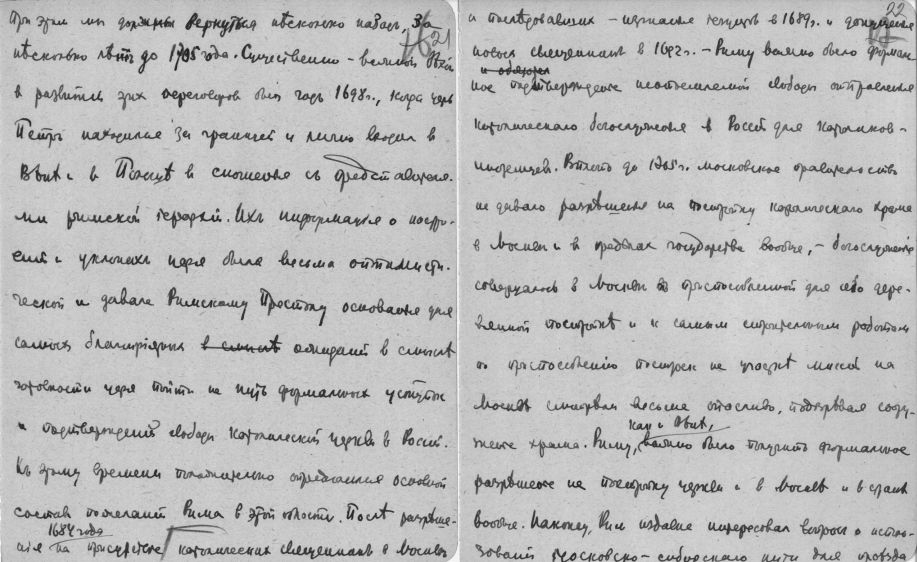 При этом мы должны вернуться нѣсколько назадъ, за
21
нѣсколько лѣтъ до 1705 года. Существенно - важной
в развитiи этих переговоров был годъ 1698 г., когда царь
Петръ находился за границей и лично входил в
Вѣнѣ и в Польшѣ в сношенiя съ представителя-
ми римской iерархiи. Ихъ информацiя о
и царя была весьма оптимисти-
ческой и давала Римскому Престолу основанiя для
самых благопрiятных в смыслѣ ожиданiй в смыслѣ
готовности царя пойти на путь формальных уступок
и подтвержденiй свободы католической церкви в Россiи.
Къ этому времени окончательно определился основной
состав пожеланiй Рима в этой области. Послѣ разрѣше-
1684 года
нiя на присутствiе католических священников в Москвѣ
22
и послѣдовавших - изгнанiе iезуитов в 1689 г. и допущенiе
новых священников в 1692 г. - Риму важно было формаль-
ное подтвержденiе неотъемлемой свободы отправленiя
католического богослуженiя в Россiи для католиков-
иноземцев. Вплоть до 1705 г. московское правительство
не давало разрѣшенiя на постройку католического храма
в Москвѣ и в предѣлах государства вообще, - богослуженiе
совершалось в Москвѣ в приспособленной для сего дере-
вянной постройкѣ и к самым строительным работам
по приспособленiю построек на участкѣ миссiи на
Москвѣ смотрѣли весьма опасливо, подозрѣвая соору-
женiе храма. Риму, как и Вѣнѣ, важно было получить формальное
разрѣшенiе на постройку церкви и в Москвѣ и в странѣ
вообще. Наконец, Рим издавна интересовал вопрос о исполь-
зованiи московско-сибирского пути для проѣзда